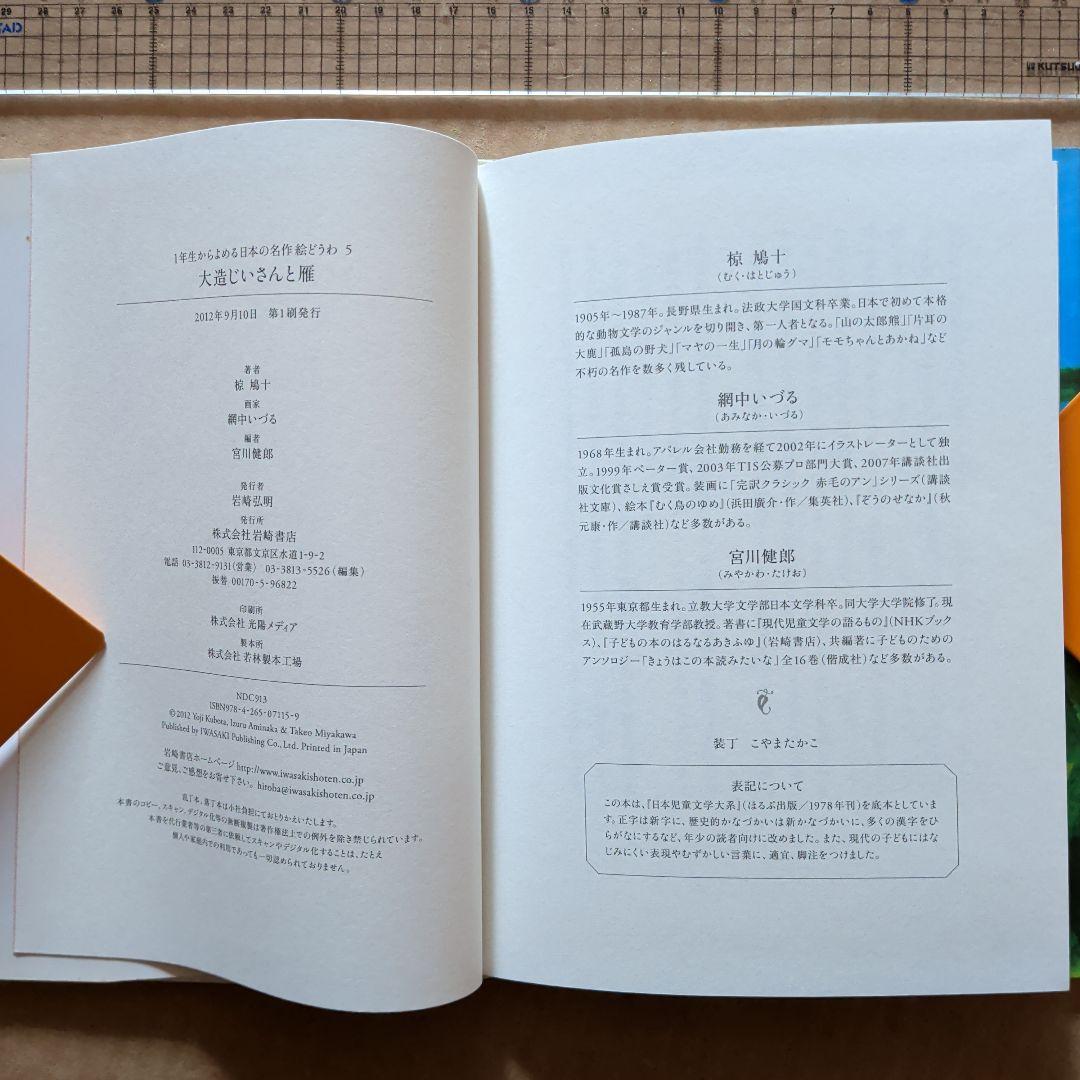 29 28 27 26 25 24 23 22 21 20 19 18 17 16 15 14 13 12 11 10 9 8 7 6 5 4 3 2 1
KUTSUW
1年生からよめる日本の名作絵どうわ 5
大造じいさんと雁
2012年9月10日 第1刷発行
著者
椋 鳩十
画家
網中いづる
編者
宮川健郎
発行者
岩崎弘明
発行所
株式会社岩崎書店
112-0005 東京都文京区水道1-9-2
電話 03-3812-9131(営業) 03-3813-5526(編集)
振替 00170-5-96822
印刷所
株式会社 光陽メディア
製本所
株式会社 若林製本工場
NDC913
ISBN978-4-265-07115-9
©2012 Yoji Kubota, Izuru Aminaka & Takeo Miyakawa
Published by IWASAKI Publishing Co., Ltd. Printed in Japan
岩崎書店ホームページ http://www.iwasakishoten.co.jp
ご意見、ご感想をお寄せ下さい。hiroba@iwasakishoten.co.jp
乱丁本、落丁本は小社負担にておとりかえいたします。
本書のコピー、スキャン、デジタル化等の無断複製は著作権法上での例外を除き禁じられています。
本書を代行業者等の第三者に依頼してスキャンやデジタル化することは、たとえ
個人や家庭内での利用であっても一切認められておりません。
椋 鳩十
(むく・はとじゅう)
1905年〜1987年。長野県生まれ。法政大学国文科卒業。日本で初めて本格
的な動物文学のジャンルを切り開き、第一人者となる。「山の太郎熊」「片耳の
大鹿」「孤島の野犬」「マヤの一生」「月の輪グマ」「モモちゃんとあかね」など
不朽の名作を数多く残している。
網中いづる
(あみなか・いづる)
1968年生まれ。アパレル会社勤務を経て2002年にイラストレーターとして独
立。1999年ペーター賞、2003年TIS公募プロ部門大賞、2007年講談社出
版文化賞さしえ賞受賞。装画に「完訳クラシック 赤毛のアン」シリーズ(講談
社文庫)、絵本『むく鳥のゆめ』(浜田廣介・作／集英社)、『ぞうのせなか』(秋
元康・作／講談社)など多数がある。
宮川健郎
(みやかわ・たけお)
1955年東京都生まれ。立教大学文学部日本文学科卒。同大学大学院修了。現
在武蔵野大学教育学部教授。著書に『現代児童文学の語るもの』(NHKブック
ス)、『子どもの本のはるなるあきふゆ』(岩崎書店)、共編著に子どものための
アンソロジー「きょうはこの本読みたいな」全16巻(偕成社)など多数がある。
装丁 こやまたかこ
表記について
この本は、『日本児童文学大系』(ほるぷ出版／1978年刊)を底本としていま
す。正字は新字に、歴史的かなづかいは新かなづかいに、多くの漢字をひ
らがなにするなど、年少の読者向けに改めました。また、現代の子どもにはな
じみにくい表現やむずかしい言葉に、適宜、脚注をつけました。